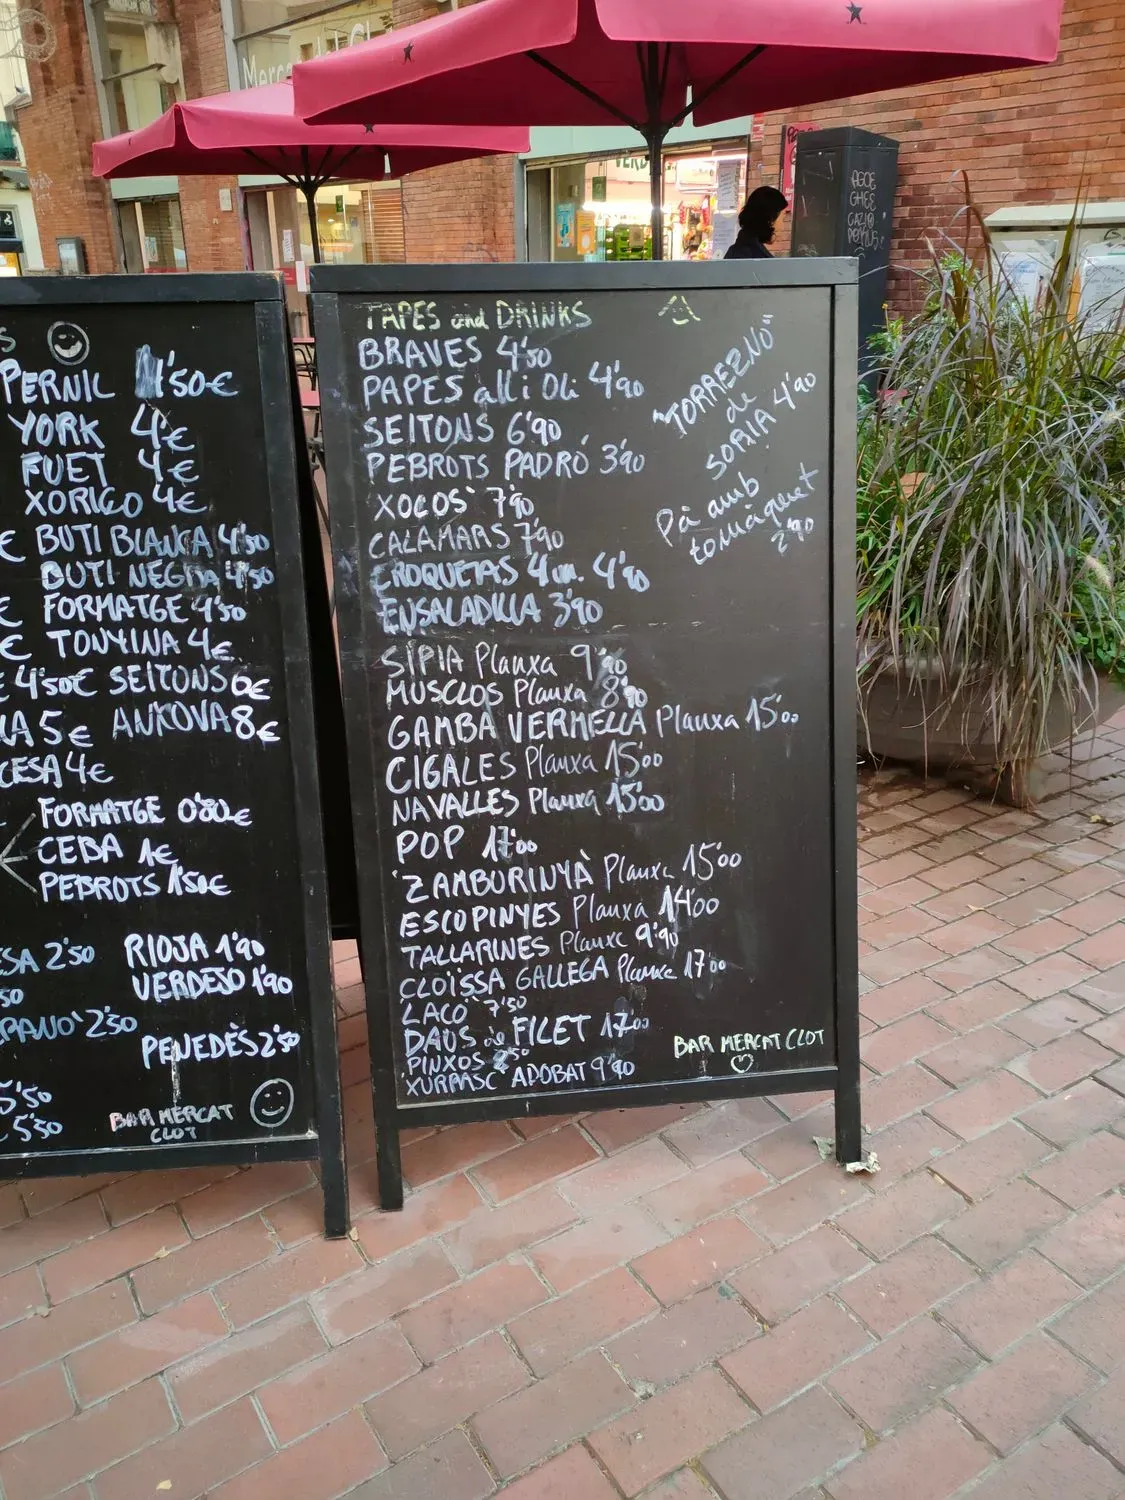 PERNIL 4'50€
YORK 4'€
FUET 4€
XORIÇO 4€
€ BUTI BLANCA 4'50
BUTI NEGRA 4'50
€ FORMATGE 4'50
€ TONYINA 4€
4'50€ SEITONS 6€
5€ ANXOVA 8€
CESA 4€
FORMATGE 0'80€
CEBA 1€
PEBROTS 1'50€
2'50 RIOJA 1'90
50 VERDEJO 1'90
2'50
PENEDÈS 2'50
5'50
5'50
BAR MERCAT
CLOT
TAPES and DRINKS
BRAVES 4'50
PAPES alli Oli 4'90
SEITONS 6'90
PEBROTS PADRÓ 3'90
XOCOS 7'90
CALAMARS 7'90
CROQUETAS 4un. 4'90
ENSALADILLA 3'90
SIPIA Planxa 9'90
MUSCLOS Planxa 8'90
GAMBA VERMELLA Planxa 15'00
CIGALES Planxa 15'00
NAVALLES Planxa 15'00
POP 17'00
ZAMBURINYÀ Planxa 15'00
ESCOPINYES Planxa 14'00
TALLARINES Planxa 9'90
CLOÏSSA GALLEGA Planxa 17'00
LACÓ 7'50
DAUS de FILET 17'00
PINXOS 2'50
XURRASC ADOBAT 9'90
"TORREZNO"
de
SORIA 4'90
Pà amb
tomàquet
2'90
BAR MERCAT CLOT